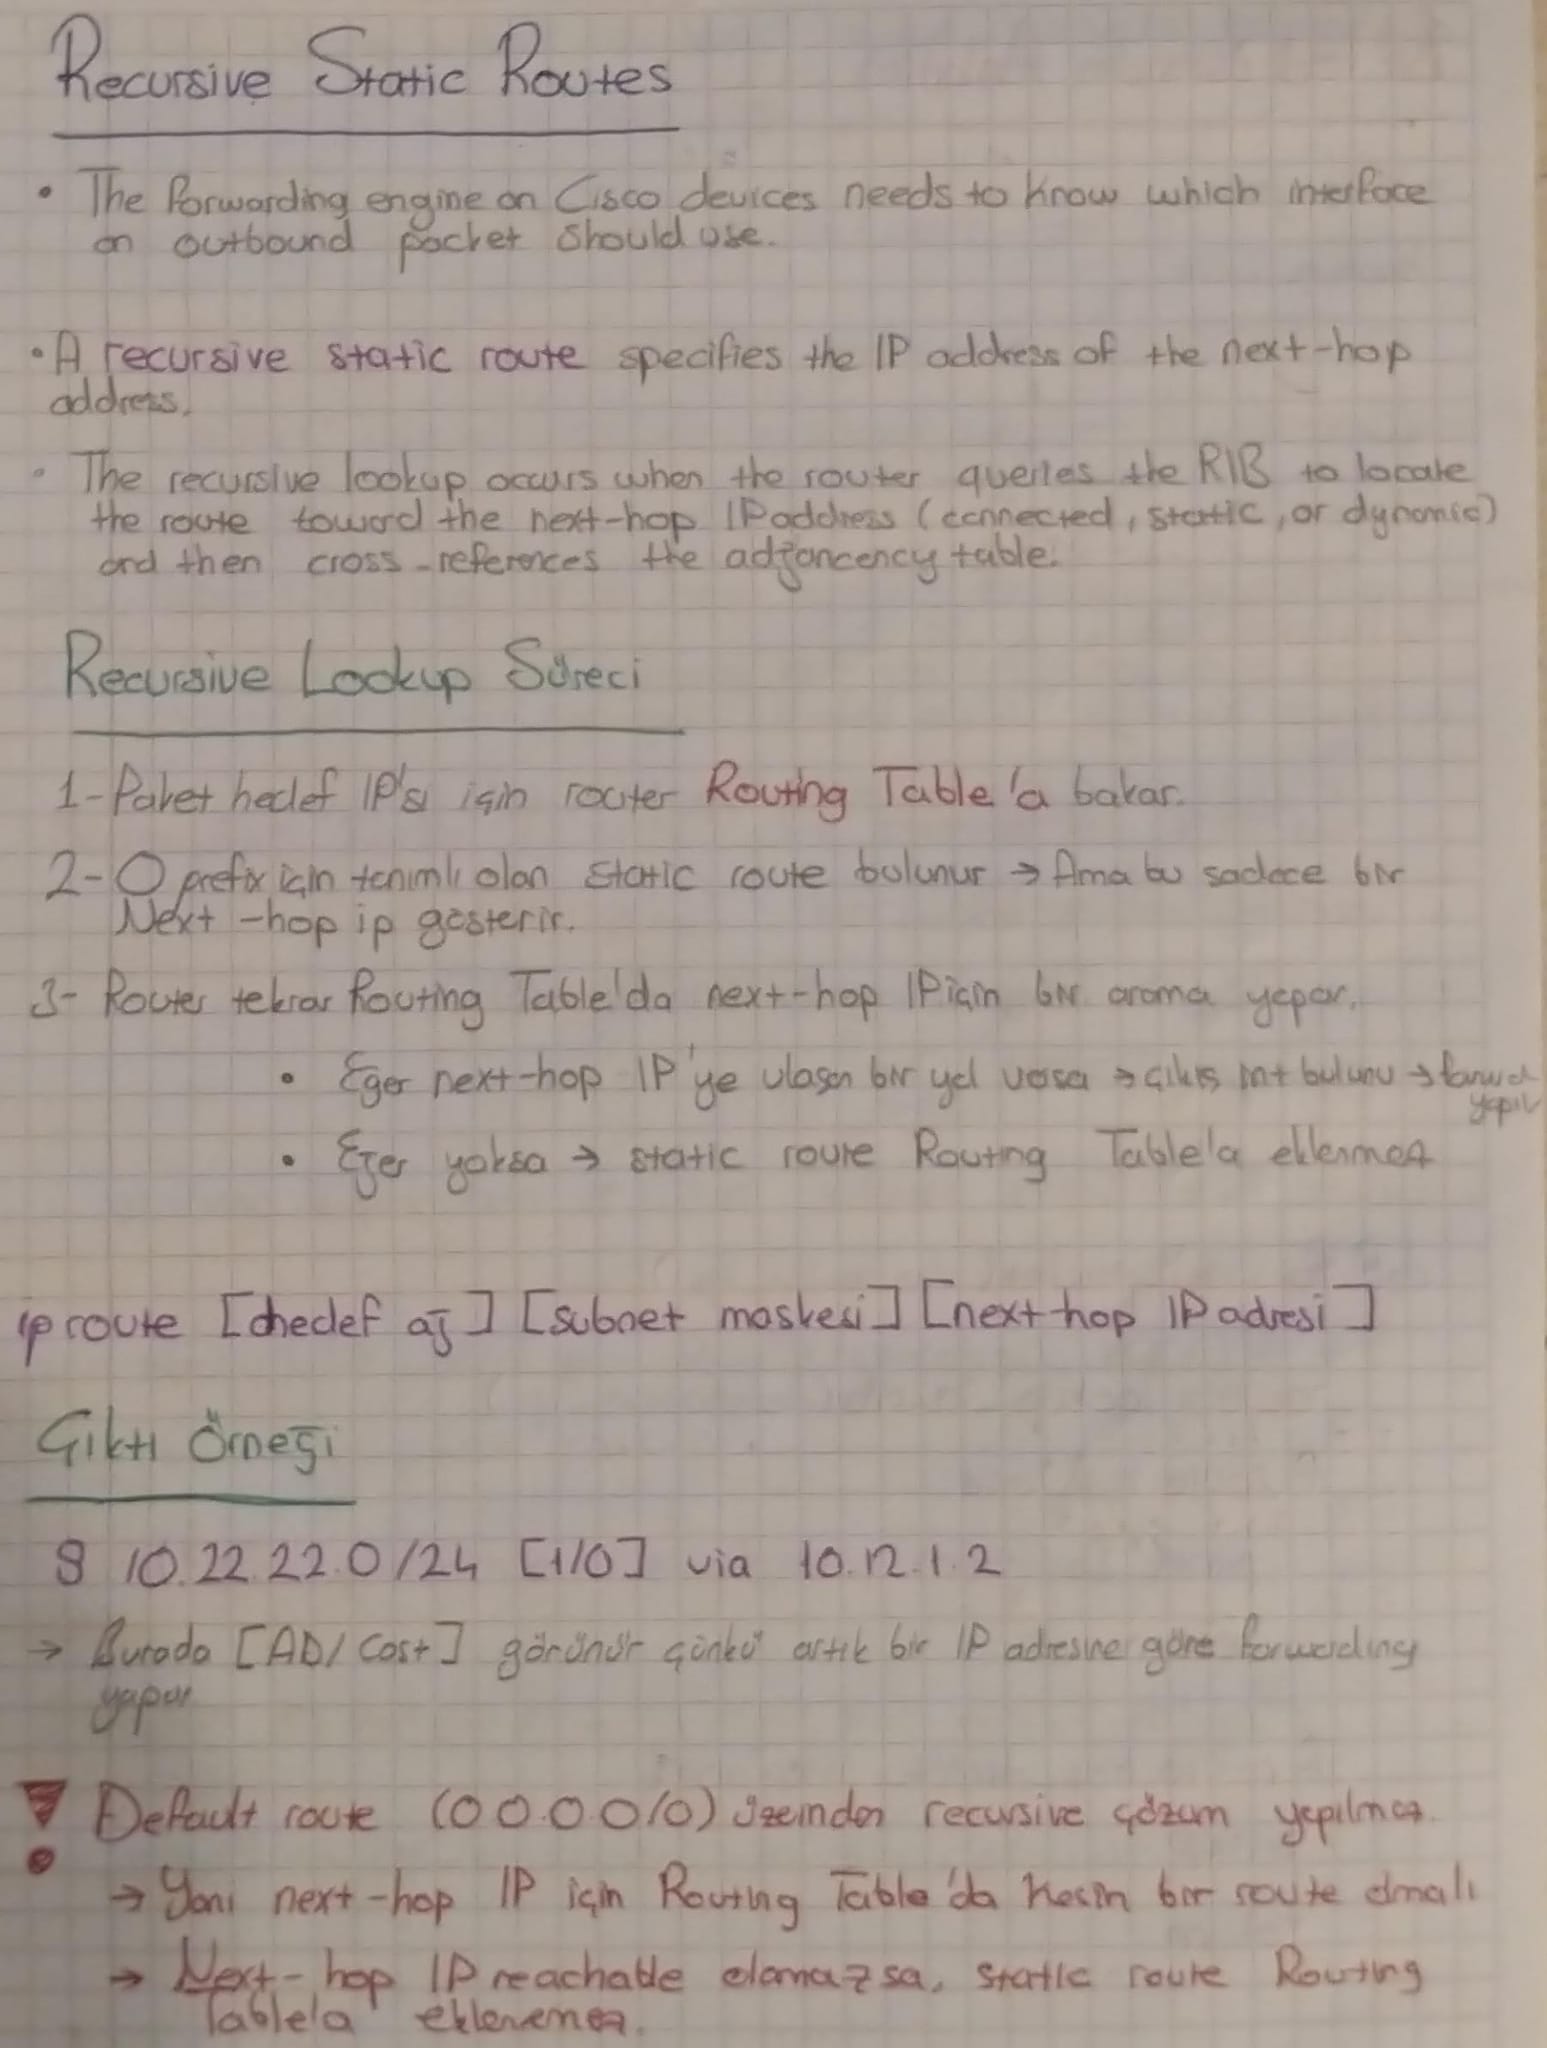 Recursive Static Routes
• The forwarding engine on Cisco devices needs to know which interface
an outbound packet should use.
• A recursive static route specifies the IP address of the next-hop
address.
• The recursive lookup occurs when the router queries the RIB to locate
the route toward the next-hop IP address (connected, static, or dynamic)
and then cross-references the adjancency table.
Recursive Lookup Süreci
1- Paket hedef IP'si için router Routing Table'a bakar.
2- O prefix için tanımlı olan static route bulunur → Ama bu sadece bir
Next-hop ip gösterir.
3- Router tekrar Routing Table'da next-hop IP için bir arama yapar.
• Eğer next-hop IP'ye ulaşan bir yol varsa → çıkış int bulunu →
yapılı
• Eğer yoksa → static route Routing Table'a eklenmez
ip route [hedef ağ] [subnet maskesi] [next hop IP adresi]
Çıktı Örneği
S 10.22.22.0/24 [1/0] via 10.12.1.2
→ Burada [AD/Cost] görünür çünkü artık bir IP adresine göre forwarding
yapar
! Default route (0.0.0.0/0) üzeinden recursive çözüm yapılmaz.
→ Yani next-hop IP için Routing Table'da kesin bir route olmalı
→ Next-hop IP reachable olamazsa, static route Routing
Table'a eklenemez.